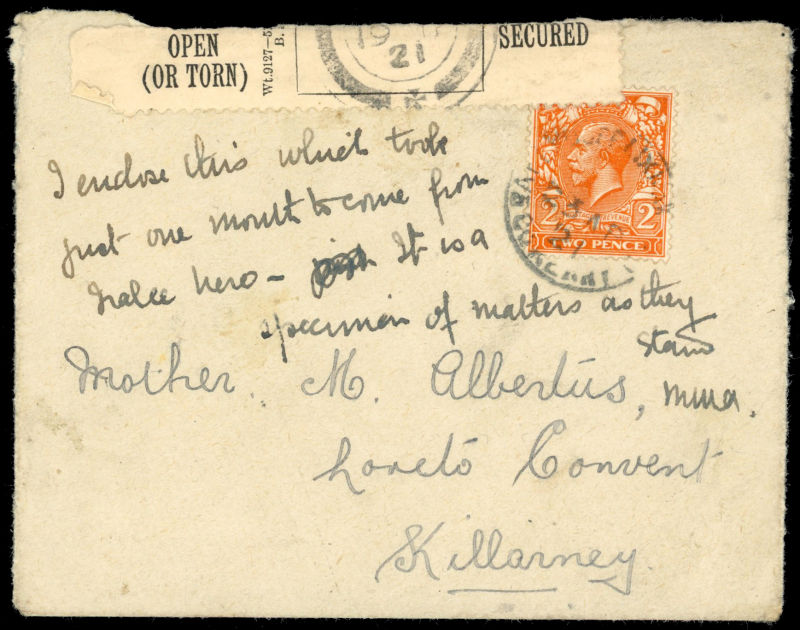 OPEN
(OR TORN)
Wt.9127-5
B.
19
21
SECURED
I enclose this which took
just one month to come from
Tralee here - It is a
specimen of matters as they
stand
Mother. M. Albertus,
Loreto Convent
Killarney.
2 POSTAGE REVENUE 2
TWO PENCE
KERRY